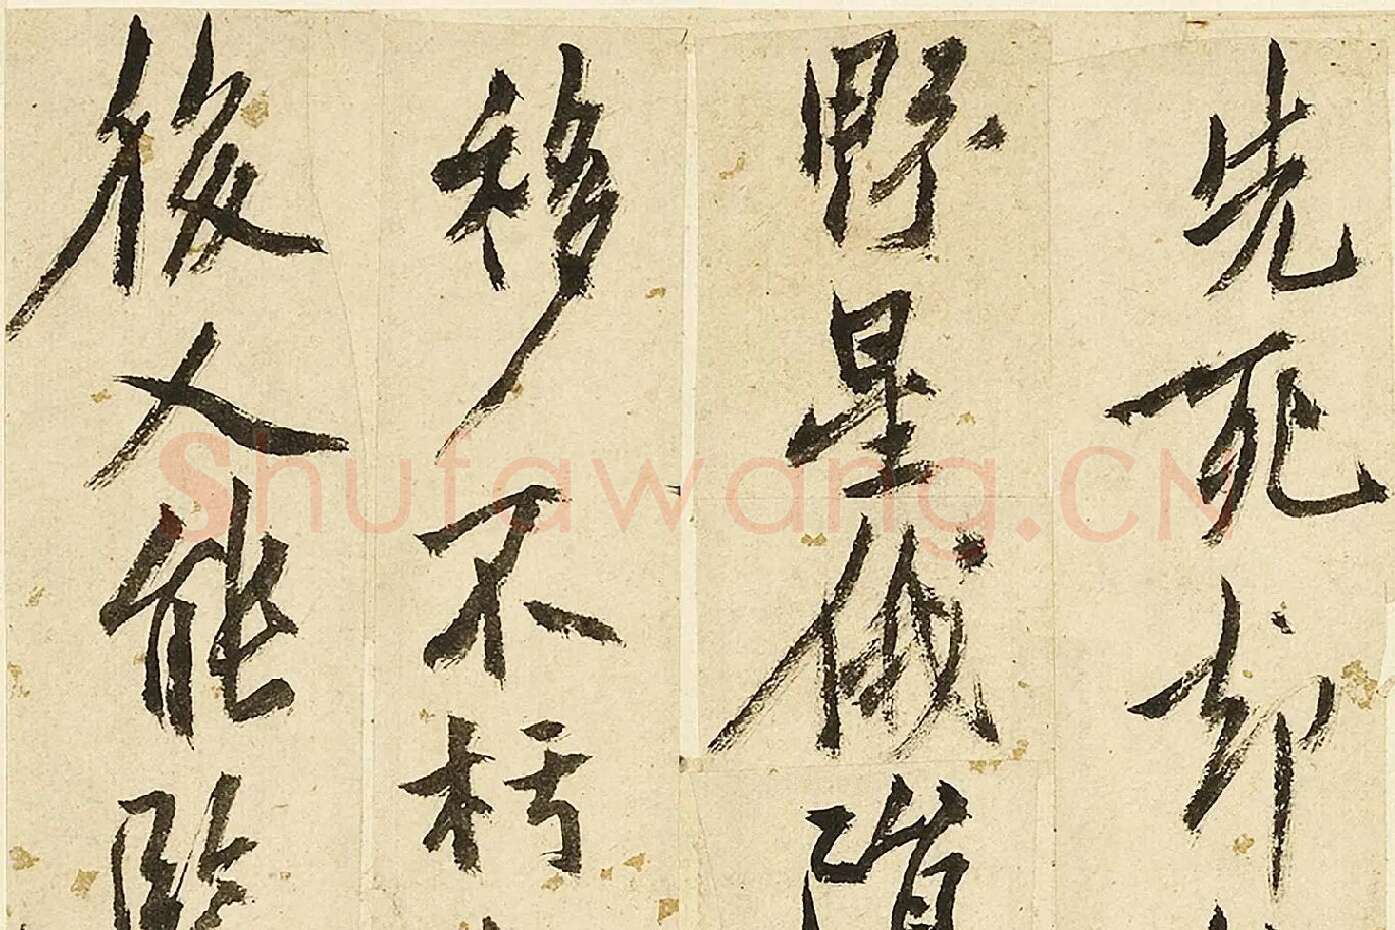 先死却
野星俄
移不朽
後人能臨
Shufawang.CN